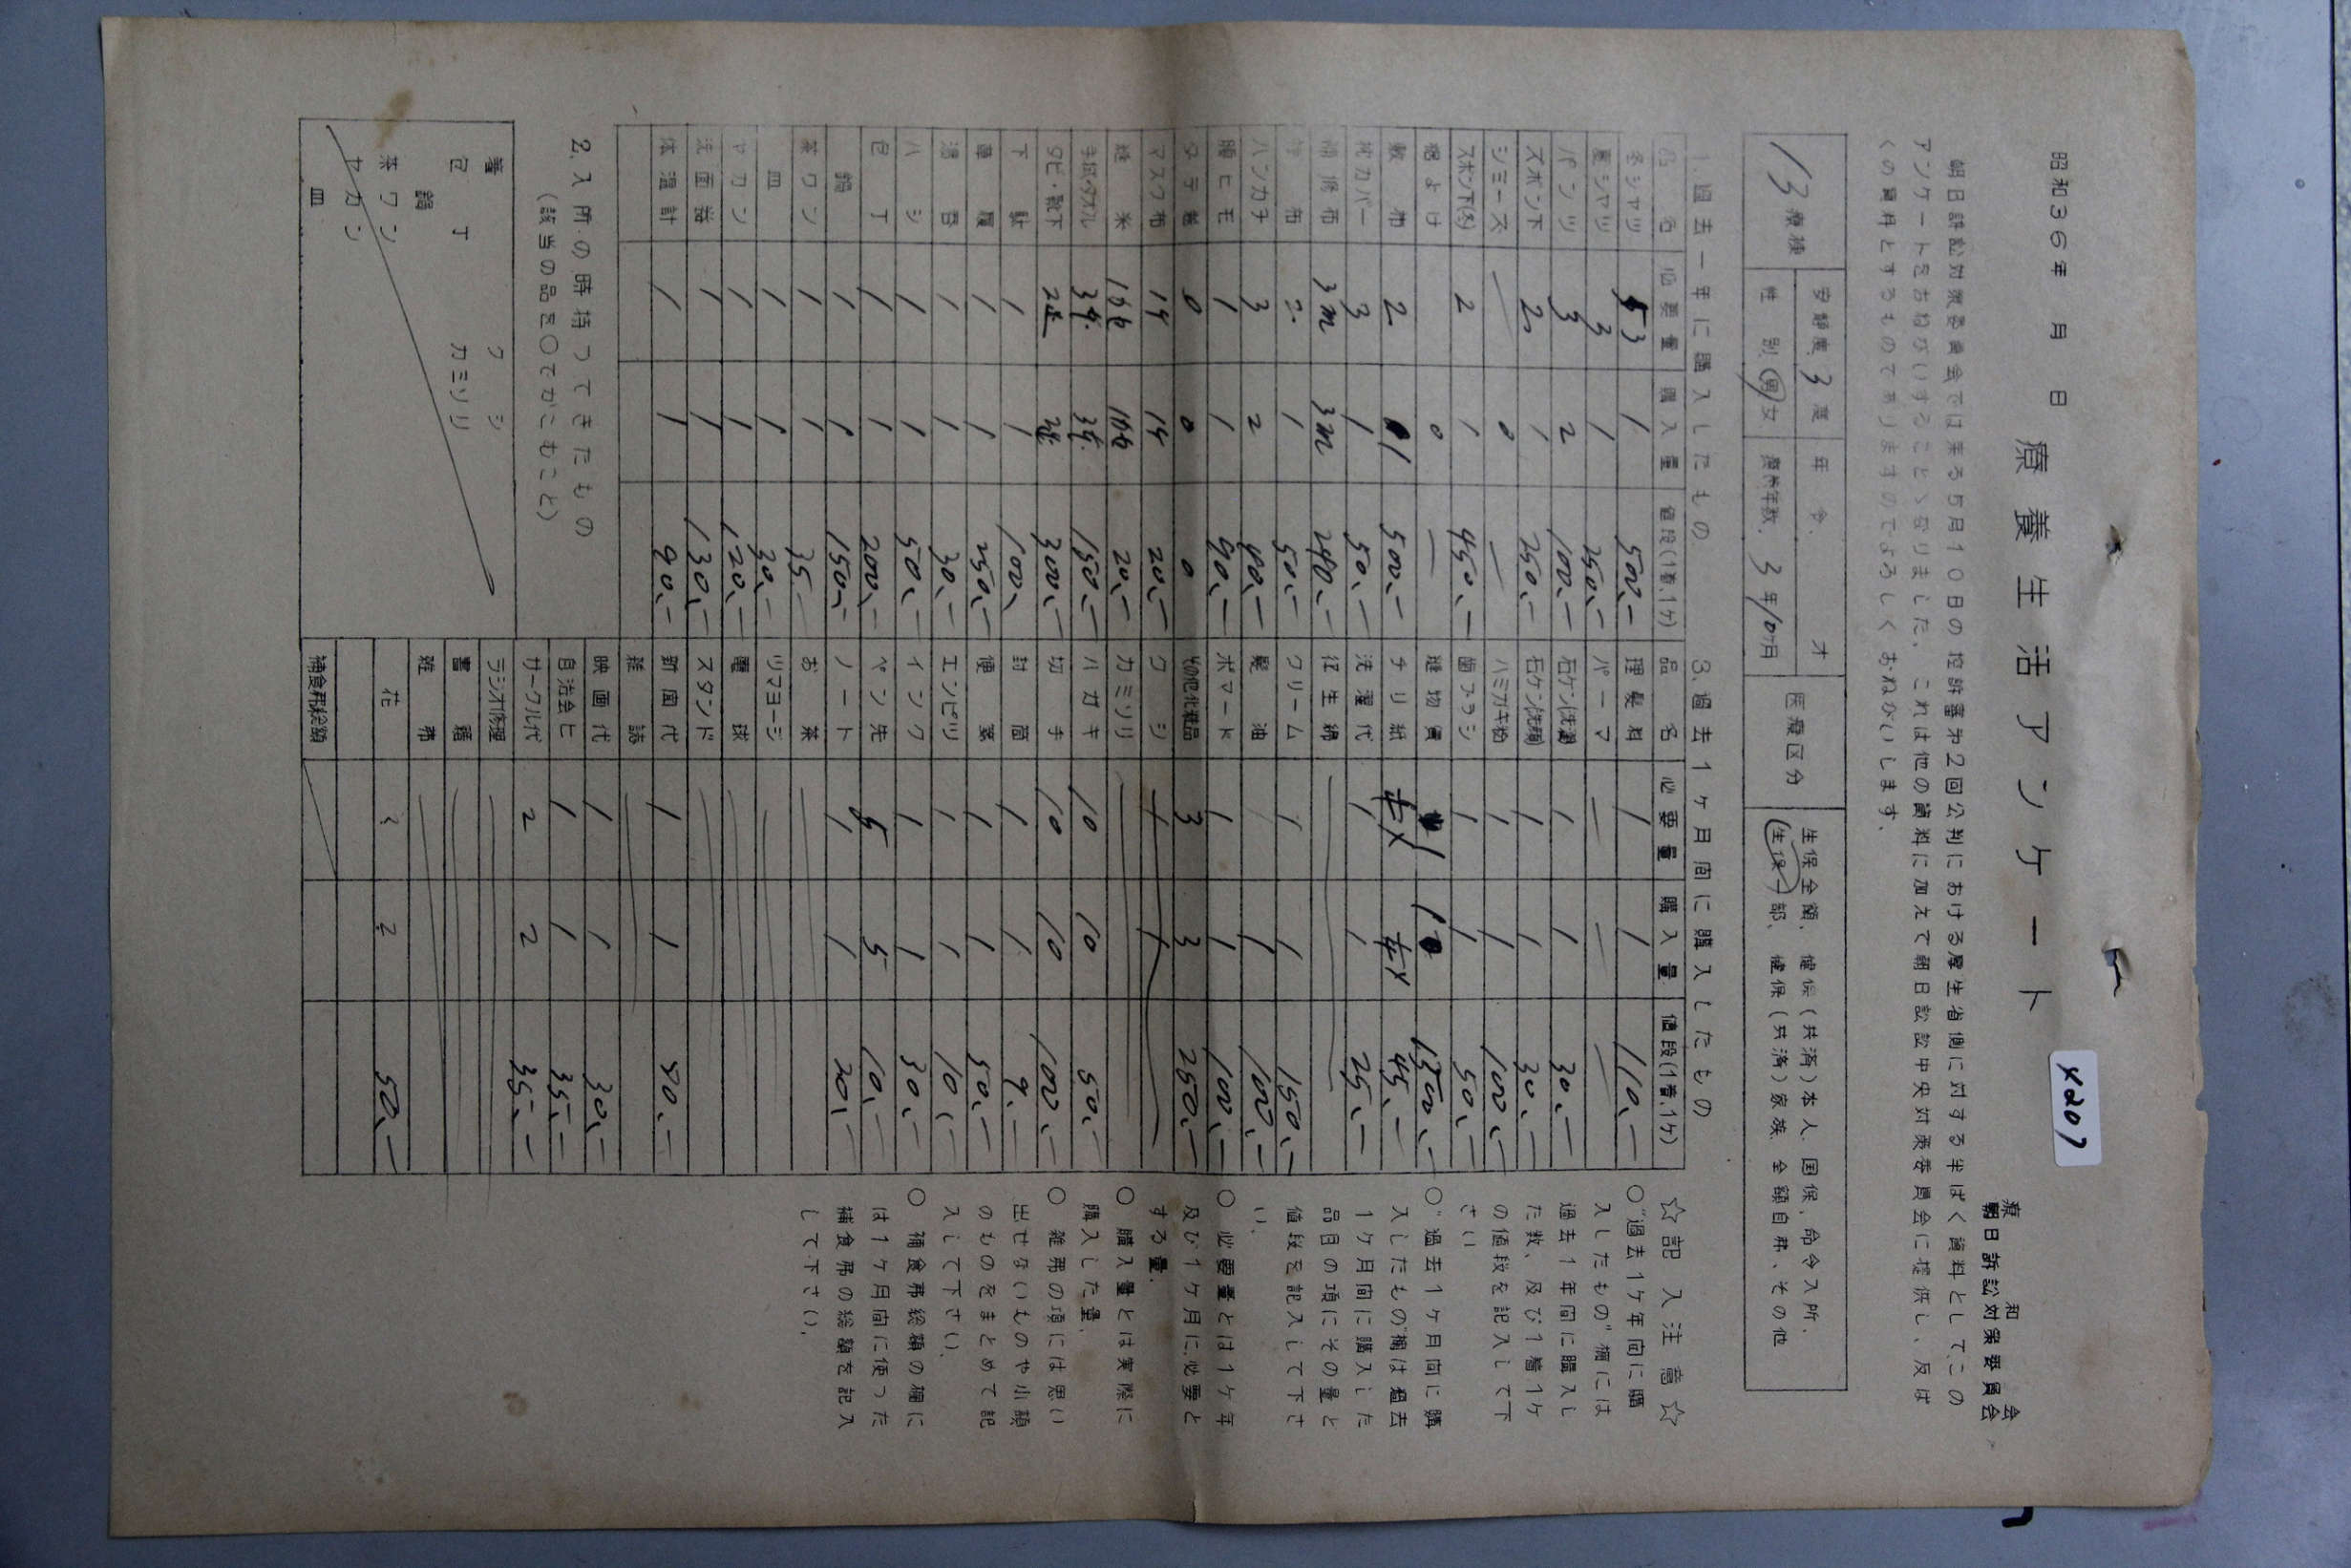 4207
昭和36年　月　日
療養生活アンケート
療和会
朝日訴訟対策委員会
朝日訴訟対策委員会では来る5月10日の控訴審第2回公判における厚生省側に対する半ばく資料としてこの
アンケートをおねがいすることゝなりました。これは他の資料に加えて朝日訴訟中央対策委員会に提供し、反ば
くの資料とするものでありますのでよろしくおねがいします。
13 療棟
安静度 3 度　年令　才　医療区分　生保全額、健保(共済)本人、国保、命令入所、
性別 男 女　療養年数 3年10ヶ月　生保一部、健保(共済)家族、全額自弁、その他
1.過去一年に購入したもの
品名　必要量　購入量　値段(1着,1ケ)
冬シャツ 3 1 500.-
夏シャツ 3 1 250.-
パンツ 3 2 100.-
ズボン下 2 1 250.-
シミーズ — 0 —
ズボン下(冬) 2 1 450.-
0 —
敷布 2 1 500.-
枕カバー 3 1 50.-
補修布 3m 3m 280.-
1 50.-
ハンカチ 3 2 40.-
腰ヒモ 1 1 90.-
0 0 0
マスク布 14 14 20.-
20.-
手拭・タオル 150.-
タビ・靴下 300.-
下駄 1 1 100.
草履 1 1 250.-
湯呑 1 1 30.-
ハシ 1 1 50.-
包丁 1 1 200.-
鍋 1 1 150.-
茶ワン 1 1 35.-
皿 1 1 30.-
ヤカン 1 1 120.-
洗面器 1 1 130.-
体温計 1 1 90.-
2.入所の時持つてきたもの
(該当の品を○でかこむこと)
箸　クシ
包丁　カミソリ
鍋
茶ワン
ヤカン
皿
3.過去1ヶ月間に購入したもの
品名　必要量　購入量　値段(1着,1ケ)
理髪料 1 1 110.-
パーマ — — —
石ケン(洗濯) 1 1 30.-
石ケン(洗顔) 1 1 30.-
ハミガキ粉 1 1 100.-
歯ブラシ 1 1 50.-
1 1
チリ紙 45.-
洗濯代 1 1 25.-
衛生綿
クリーム 1 1 150.-
髪油 1 100.-
ポマード 1 1 100.-
その他化粧品 3 3 250.-
クシ 1 1
カミソリ
ハガキ 10 10 50.-
切手 10 10 100.-
封筒 1 1 9.-
便箋 1 1 50.-
エンピツ 1 1 10.-
インク 1 1 30.-
ペン先 5 5 10.-
ノート 1 1 20.-
お茶
ツマヨージ
電球
スタンド
新聞代 1 1 80.-
雑誌
映画代 1 1 30.-
自治会ヒ 1 1 35.-
サークル代 2 2 35.-
ラジオ修理
書籍
雑弗
花 2 2 50.-
補食弗総額
☆記入注意☆
○“過去1ケ年向に購
入したもの”欄には
過去1年向に購入し
た数、及び1着1ケ
の値段を記入して下
さい
○“過去1ヶ月向に購
入したもの”欄は過去
1ケ月向に購入した
品目の項にその量と
値段を記入して下さ
い。
○ 必要量とは1ケ年
及び1ケ月に必要と
する量。
○ 購入量とは実際に
購入した量。
○ 雑弗の項には思い
出せないものや小額
のものをまとめて記
入して下さい。
○ 補食弗総額の欄に
は1ケ月向に使つた
補食弗の総額を記入
して下さい。